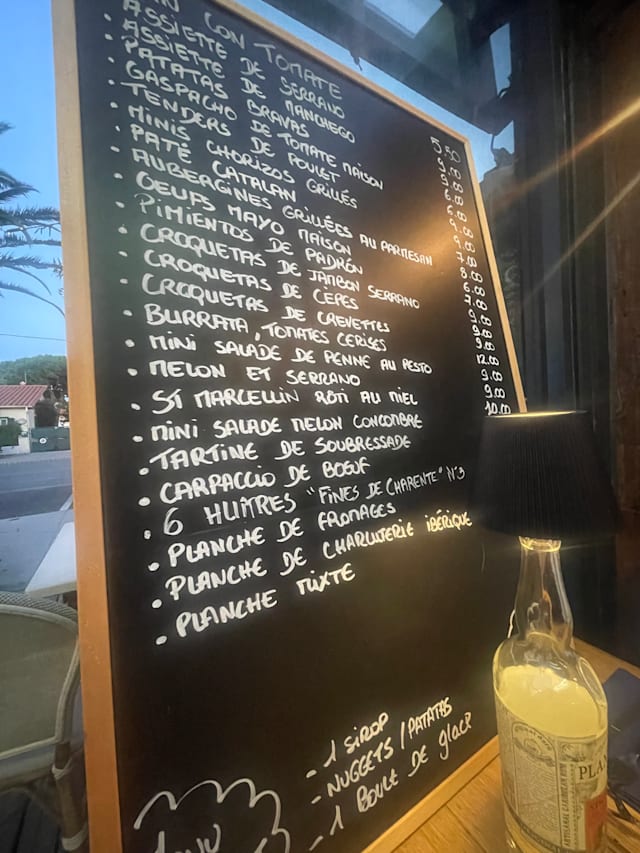 PAN CON TOMATE 5.50
· ASSIETTE DE SERRANO
· ASSIETTE DE MANCHEGO
· PATATAS BRAVAS
· GASPACHO DE TOMATE MAISON
· TENDERS DE POULET
· MINIS CHORIZOS GRILLÉS
· PATÉ CATALAN
· AUBERGINES GRILLÉES AU PARMESAN
· OEUFS MAYO MAISON
· PIMIENTOS DE PADRÓN
· CROQUETAS DE JAMBON SERRANO
· CROQUETAS DE CÈPES
· CROQUETAS DE CREVETTES
· BURRATA, TOMATES CERISES 12.00
· MINI SALADE DE PENNE AU PESTO 9.00
· MELON ET SERRANO 9.00
· ST MARCELLIN RÔTI AU MIEL 10.00
· MINI SALADE MELON CONCOMBRE
· TARTINE DE SOUBRESSADE
· CARPACCIO DE BOEUF
· 6 HUITRES "FINES DE CHARENTE" N°3
· PLANCHE DE FROMAGES
· PLANCHE DE CHARCUTERIE IBÉRIQUE
· PLANCHE MIXTE
- 1 SIROP
- NUGGETS / PATATAS
- 1 BOULE DE glace
PLAN